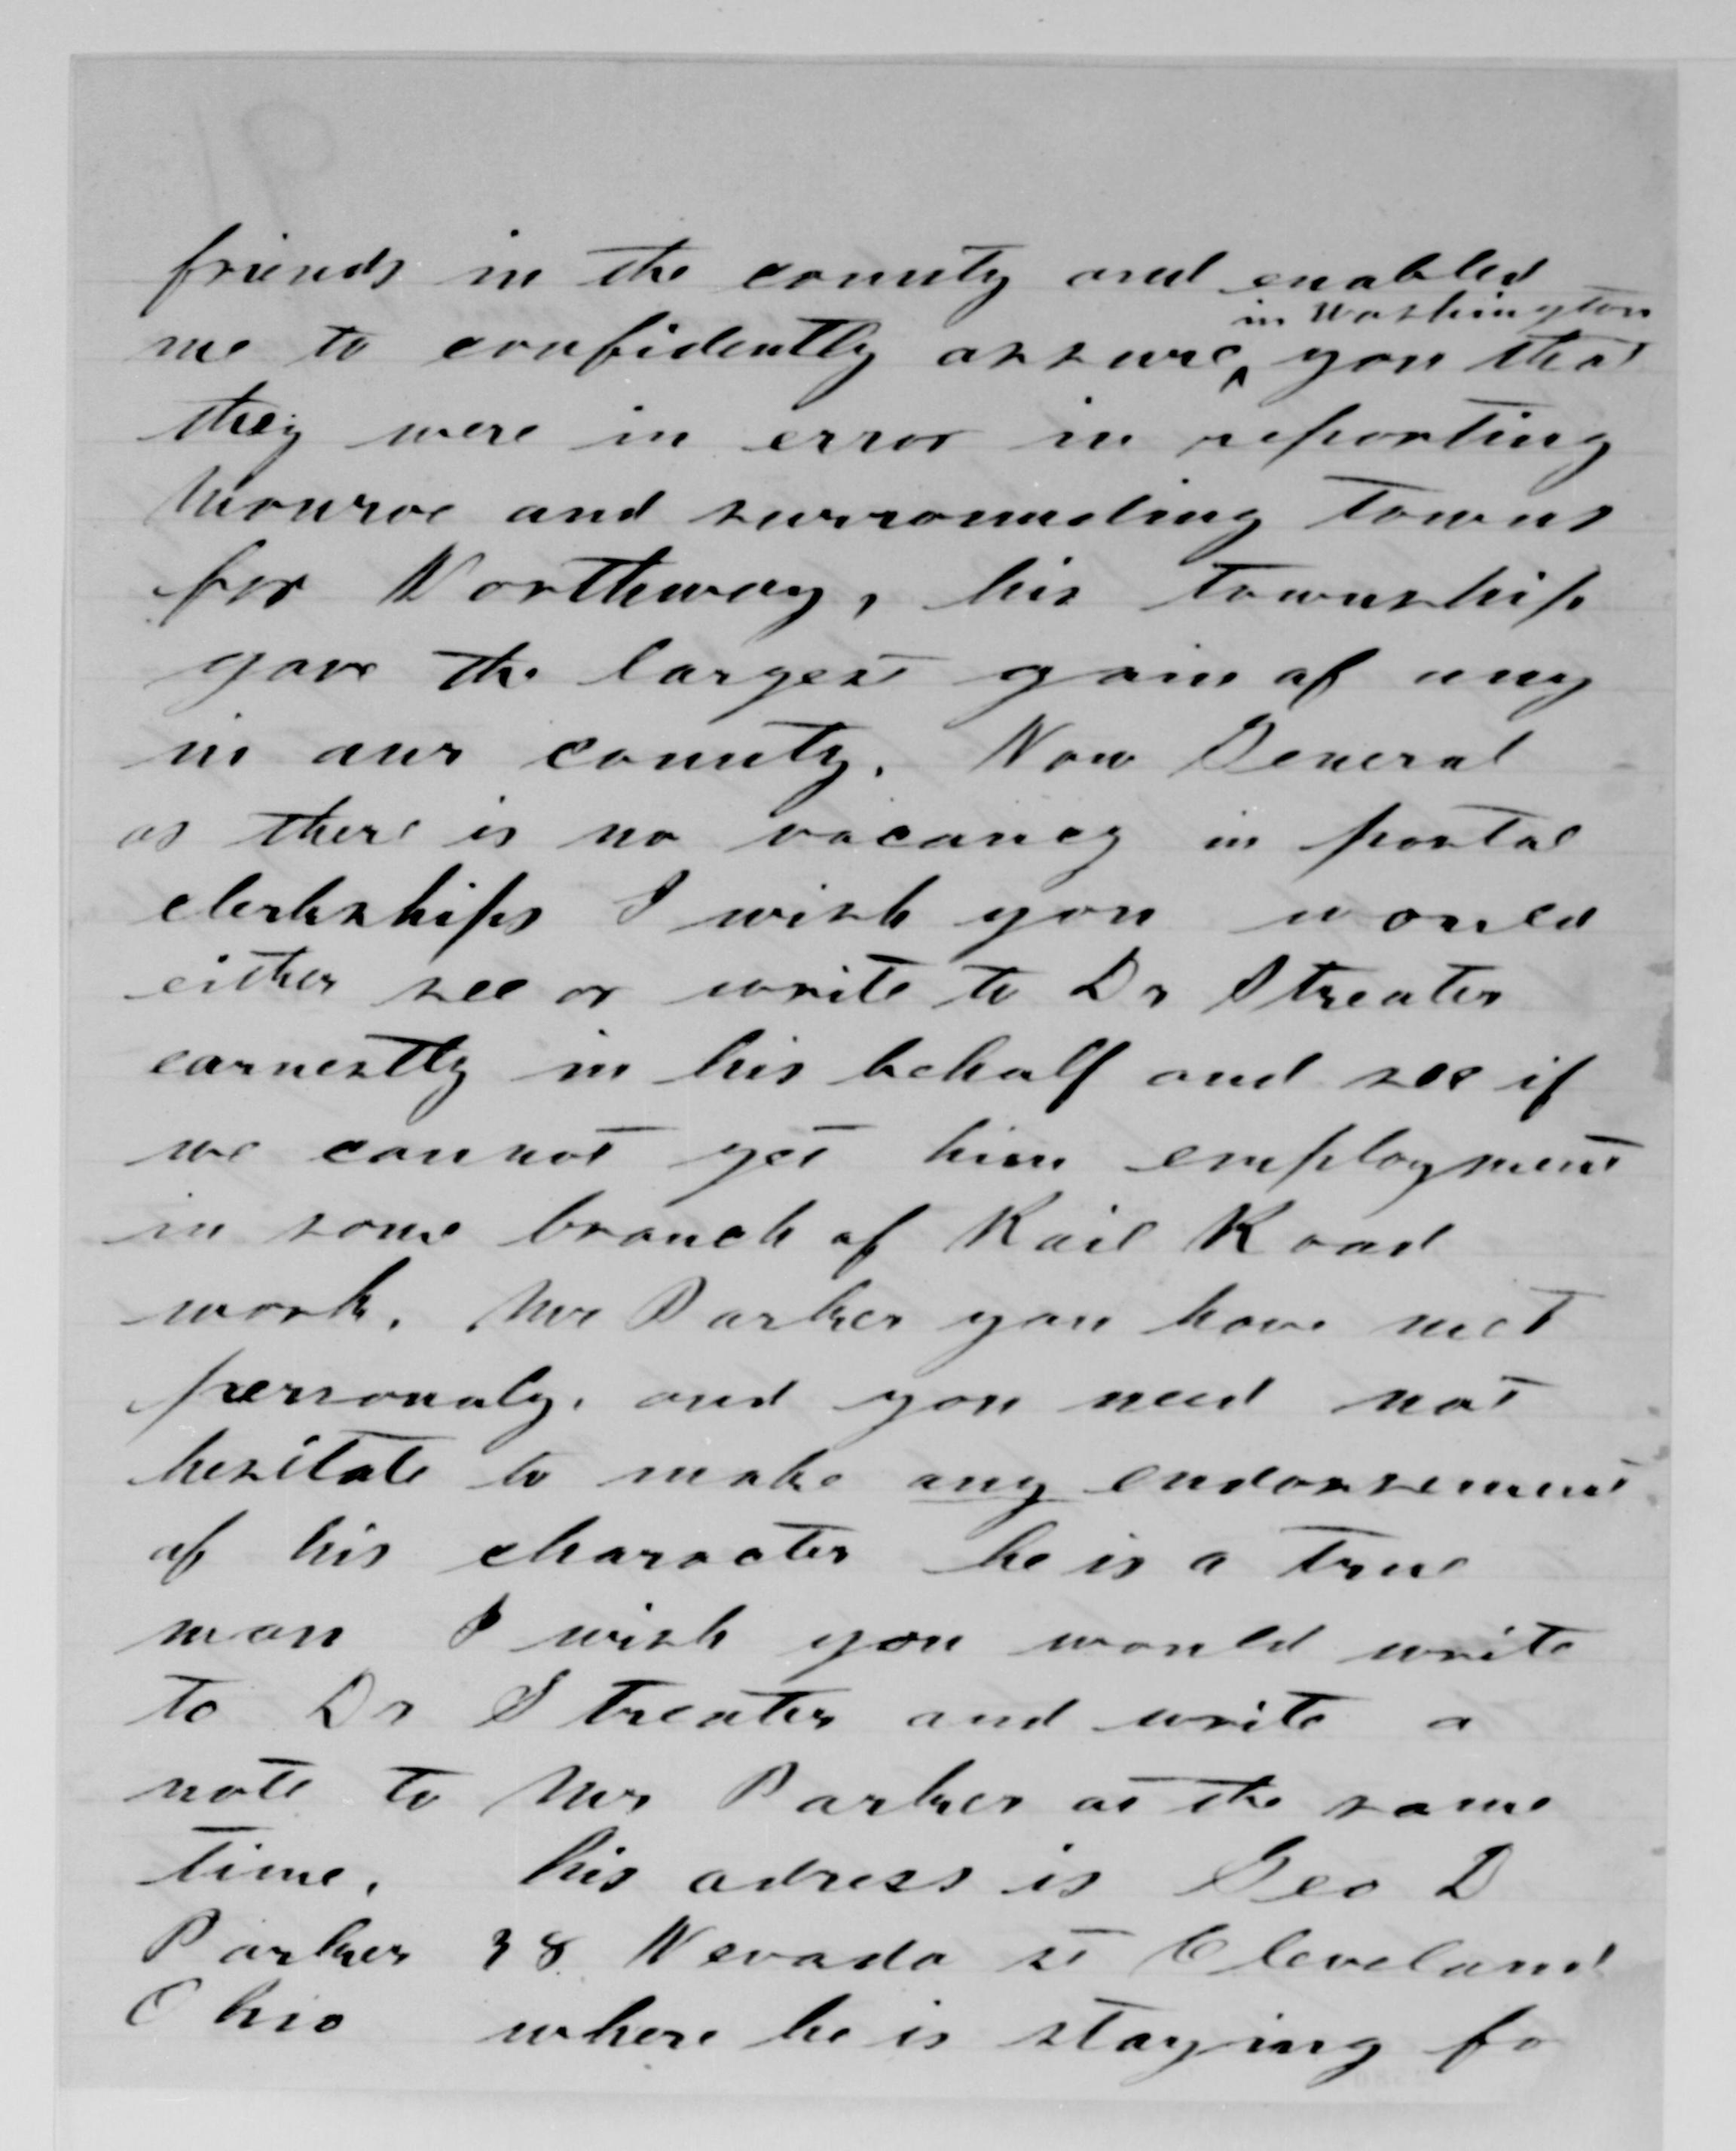 friends in the county and enabled
in Washington
me to confidently assure ^ you that
they were in error in reporting
Monroe and surrounding towns
for Northway, his township
gave the largest gain of any
in our county. Now General
as there is no vacancy in postal
clerkships I wish you would
either see or write to Dr Streater
earnestly in his behalf and see if
we cannot get him employment
in some branch of Rail Road
work. Mr Parker you have met
personaly. and you need not
hesitate to make any endorsement
of his character he is a true
man I wish you would write
to Dr Streater and write a
note to Mr Parker at the same
time. his adress is Geo D
Parker 38 Nevada st Cleveland
Ohio where he is staying fo